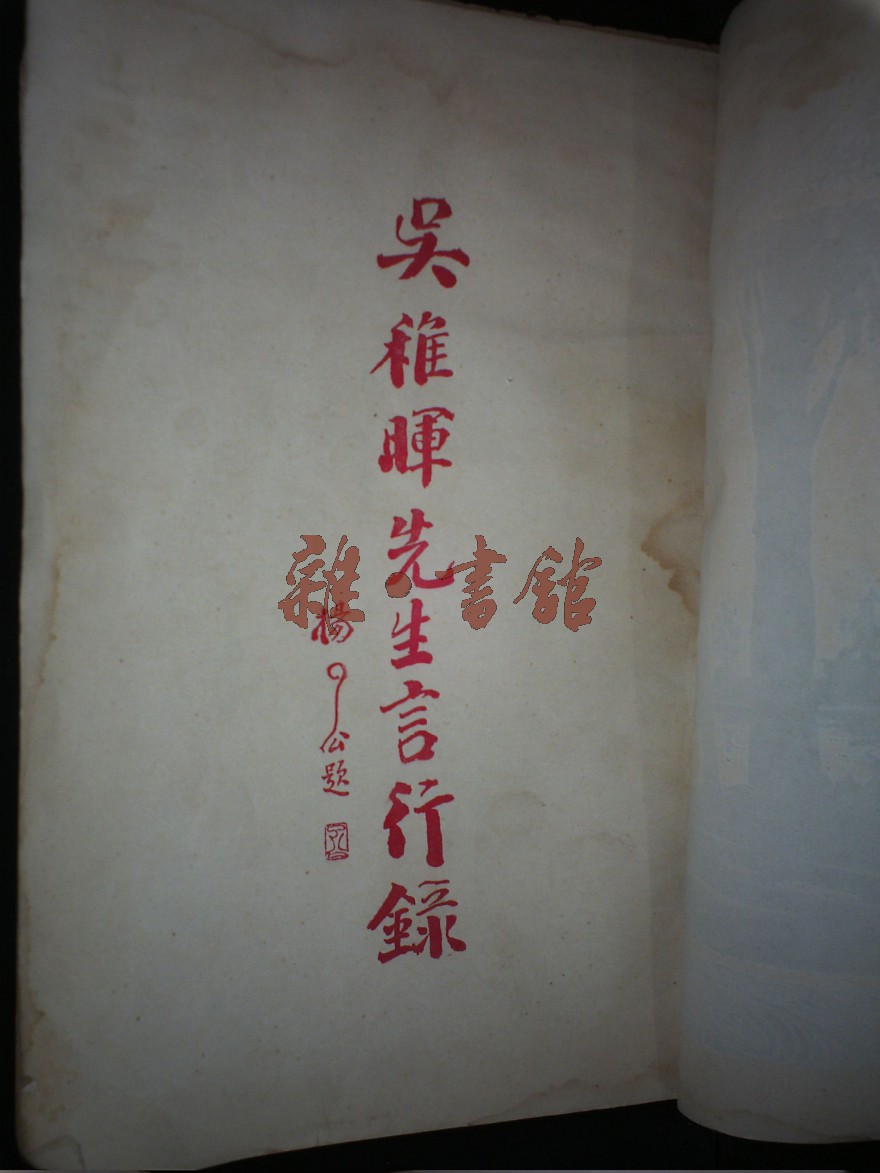 吳稚暉先生言行錄
楊公題
雜·書館